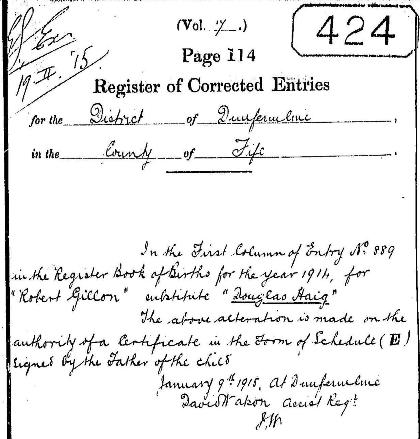 (Vol. 7.)
424
Ex
19. II. 15.
Page 114
Register of Corrected Entries
for the District of Dunfermline,
in the County of Fife
In the First Column of Entry No. 889
in the Register Book of Births for the year 1914, for
"Robert Gillon" substitute "Douglas Haig"
The above alteration is made on the
authority of a Certificate in the Form of Schedule (E)
signed by the Father of the child
January 9th 1915. At Dunfermline
David Watson Assist Regr.